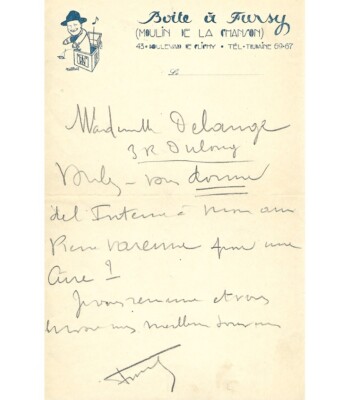 Boîte à Fursy
(MOULIN DE LA CHANSON)
43 • BOULEVARD DE CLICHY • TÉL • TRUDAINE 69-67
Le
Delange
3 R Dulong
Voulez-vous donner
de l'Interne à mon ami
Pierre Varenne pour une
?
Je vous remercie et vous
envoie mes meilleurs souvenirs
Fursy